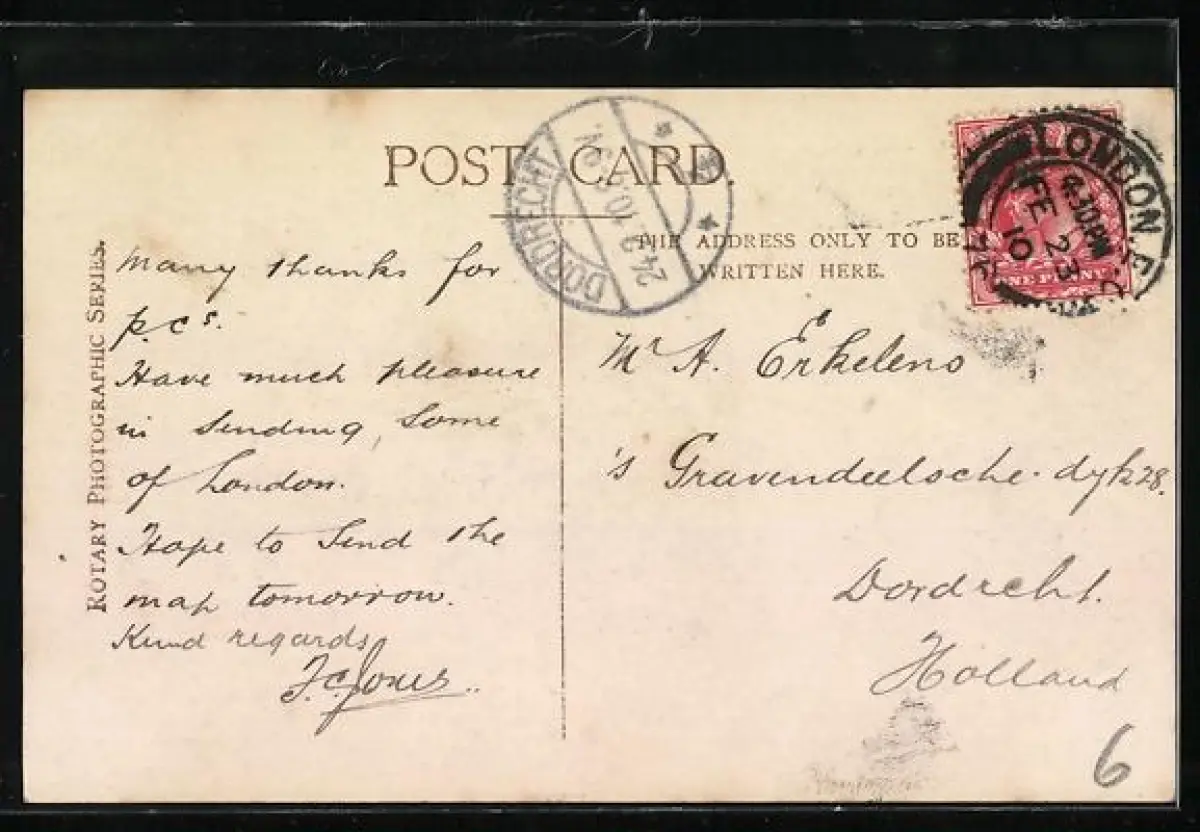 POST CARD.
THE ADDRESS ONLY TO BE
WRITTEN HERE.
ROTARY PHOTOGRAPHIC SERIES.
Many thanks for
p.cs.
Have much pleasure
in sending, some
of London.
Hope to send the
map tomorrow.
Kind regards
F.C. Jones
Mr A. Erkelens
's Gravendeelsche-dyk 28.
Dordrecht.
Holland
6
DORDRECHT
24.2.10.
LONDON. E.C.
4.30 PM
FE 23
10
ONE PENNY